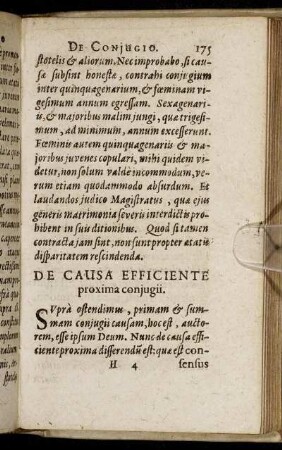 DE CONJUGIO. 175
stotelis & aliorum. Nec improbabo, si cau-
sæ subsint honestæ, contrahi conjugium
inter quinquagenarium, & fœminam vi-
gesimum annum egressam. Sexagenari-
us, & majoribus malim jungi, quæ trigesi-
mum, ad minimum, annum excesserunt.
Fœminis autem quinquagenariis & ma-
joribus juvenes copulari, mihi quidem vi-
detur, non solum valde incommodum, ve-
rum etiam quodammodo absurdum. Et
laudandos judico Magistratus, quæ ejus
generis matrimonia severis interdictis pro-
hibent in suis ditionibus. Quod si tamen
contracta jam sint, non sunt propter ætatis
disparitatem rescindenda.
DE CAUSA EFFICIENTE
proxima conjugii.
SUprà ostendimus, primam & sum-
mam conjugii causam, hoc est, aucto-
rem, esse ipsum Deum. Nunc de causa effi-
ciente proxima differendũ est: quæ est con-
H 4 sensus